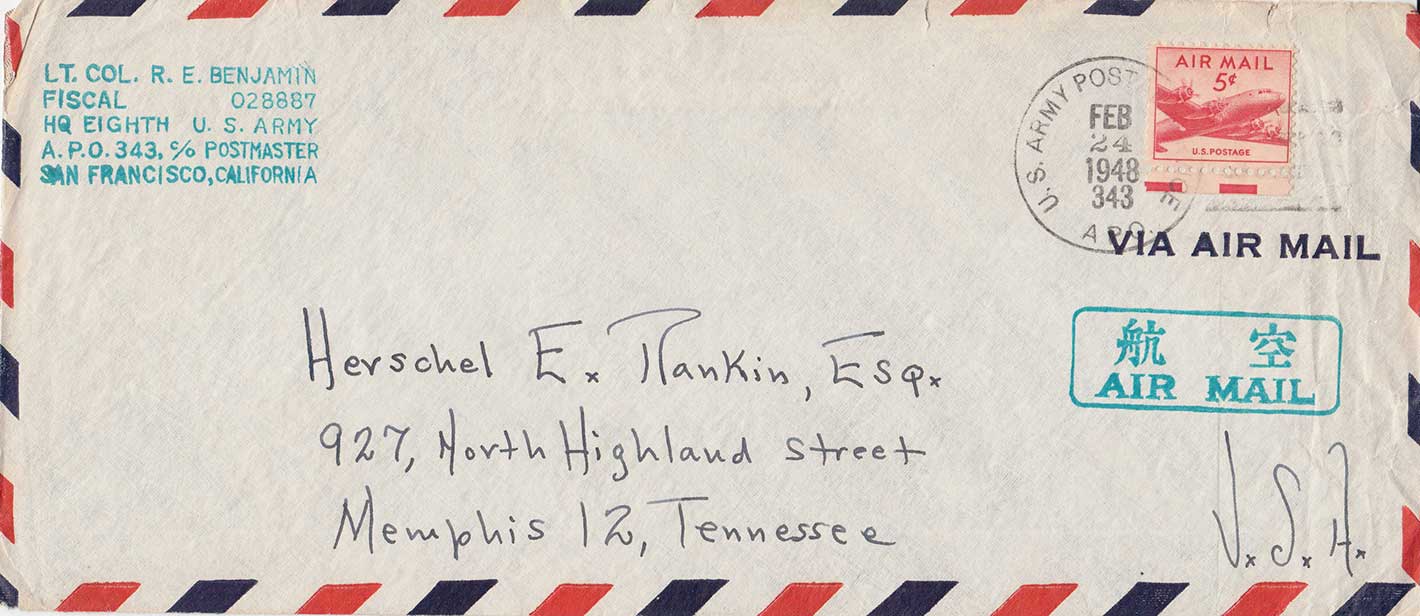 LT. COL. R. E. BENJAMIN
FISCAL 028887
HQ EIGHTH U. S. ARMY
A.P.O. 343, c/o POSTMASTER
SAN FRANCISCO, CALIFORNIA
U. S. ARMY POST CE
FEB
24
1948
343
A P O
AIR MAIL
5¢
U.S. POSTAGE
VIA AIR MAIL
航空
AIR MAIL
Herschel E. Rankin, Esq.
927, North Highland Street
Memphis 12, Tennessee
U.S.A.